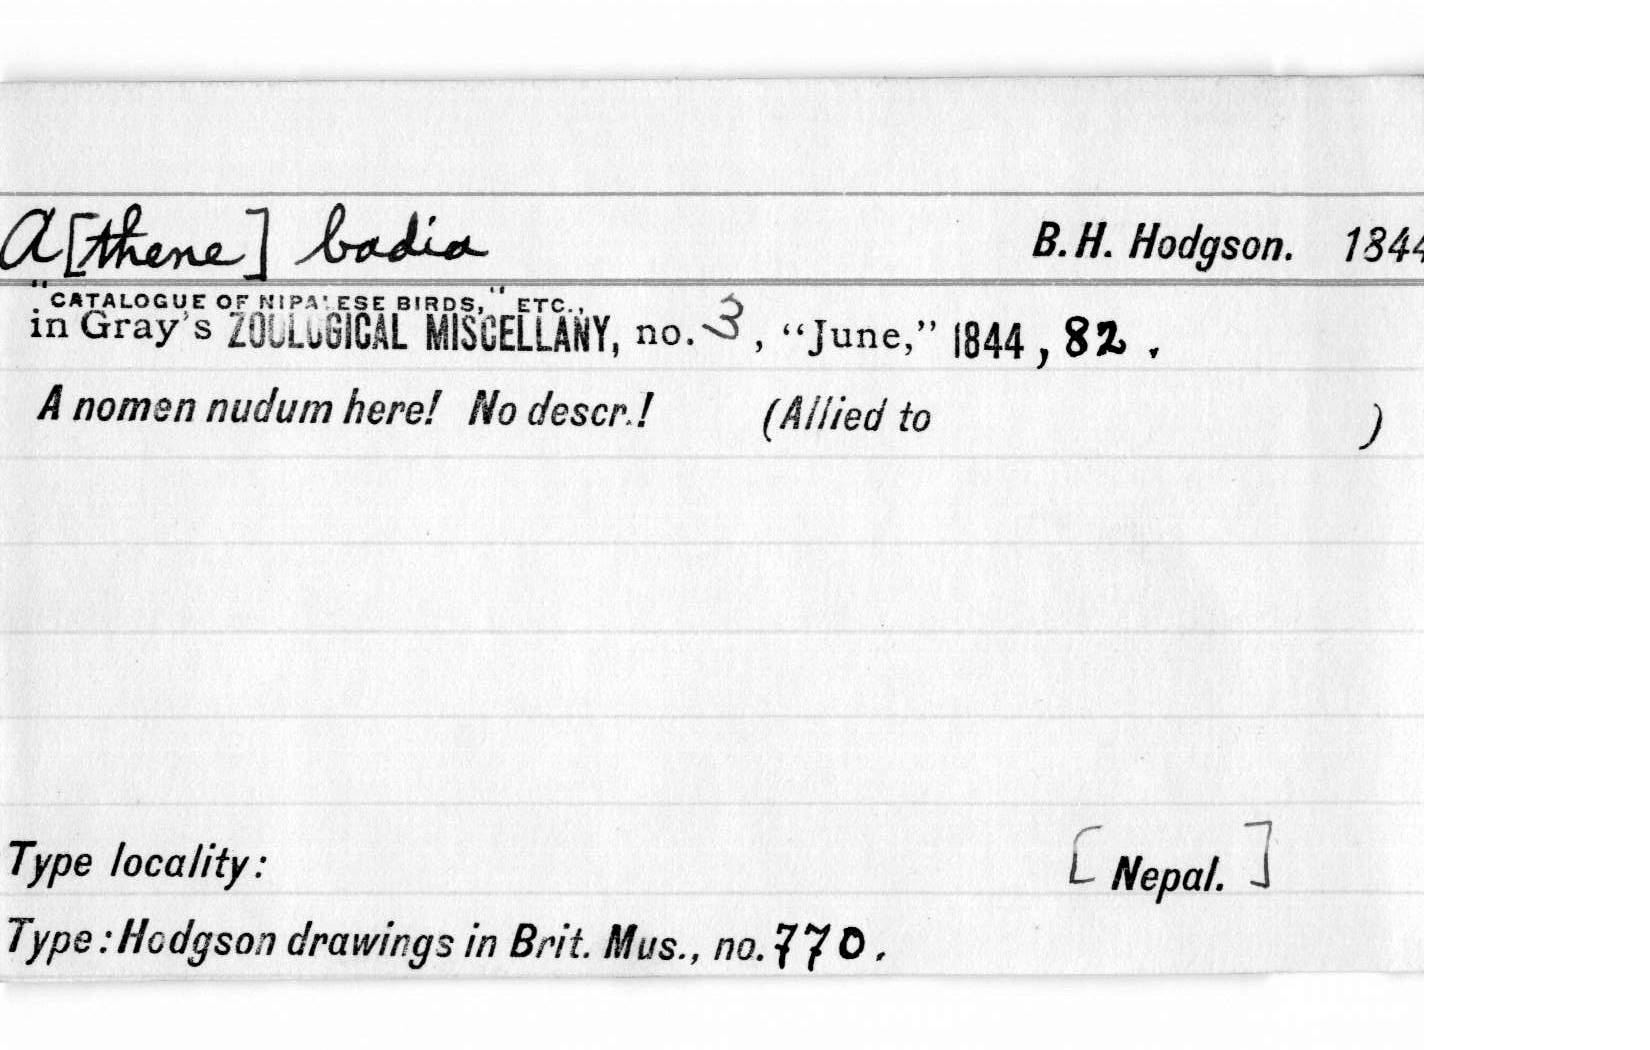 A[thene] badia B.H. Hodgson. 1844
"CATALOGUE OF NIPALESE BIRDS," ETC.,
in Gray's ZOOLOGICAL MISCELLANY, no. 3, "June," 1844, 82.
A nomen nudum here! No descr.! (Allied to )
Type locality: [Nepal.]
Type: Hodgson drawings in Brit. Mus., no. 770.